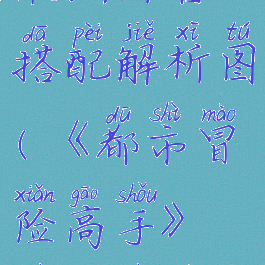 dā pèi jiě xī tú
搭配解析图
dū shì mào
(《都市冒
xiǎn gāo shǒu
险高手》